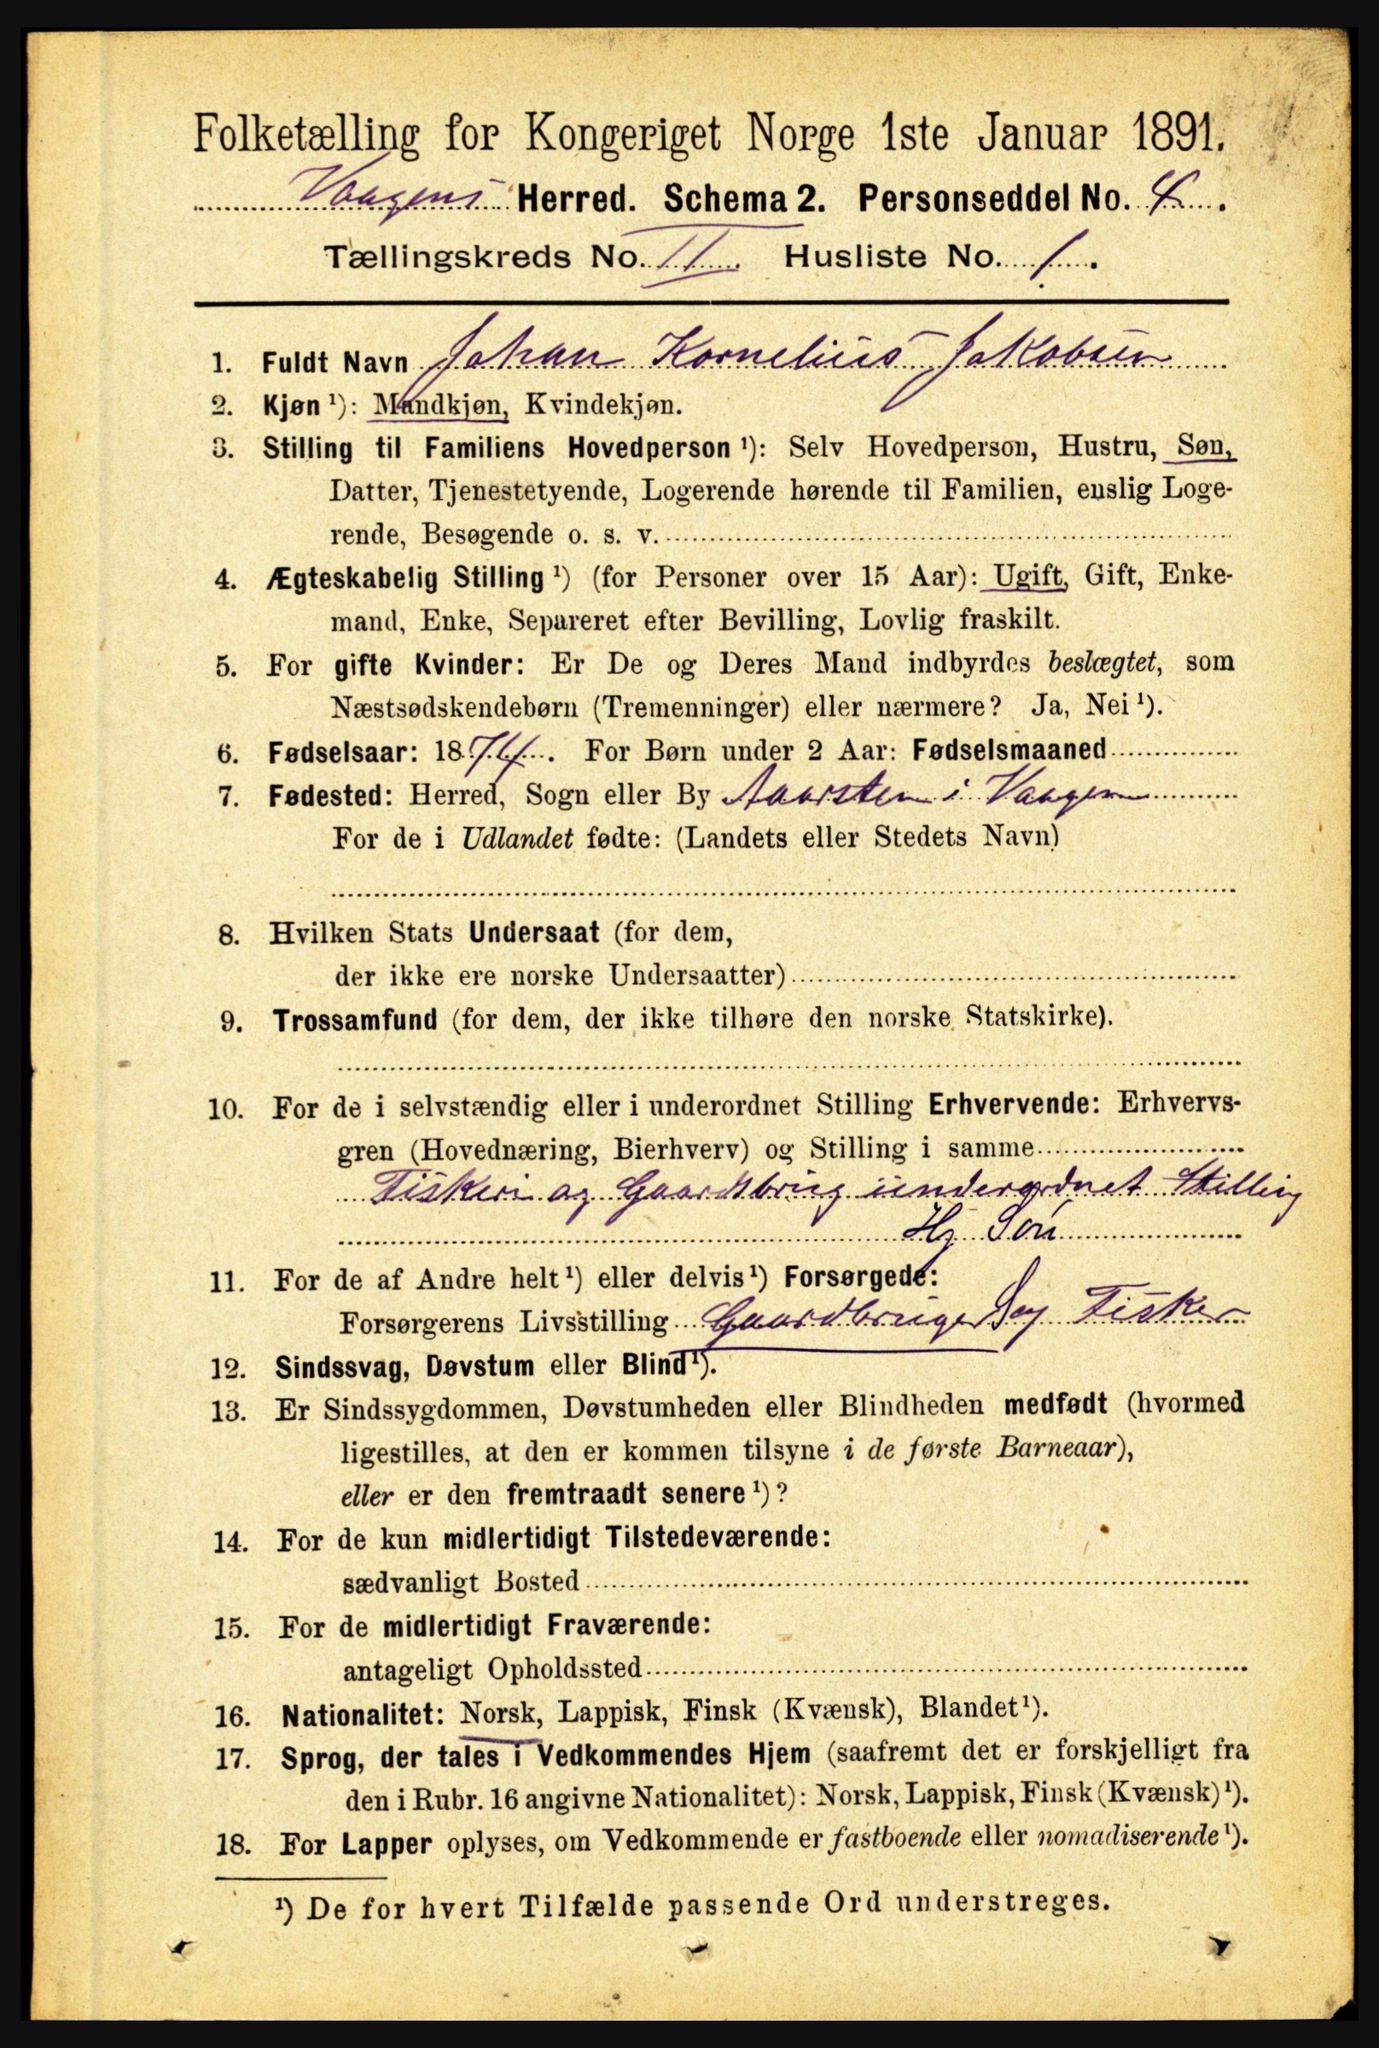 Folketælling for Kongeriget Norge 1ste Januar 1891.
Vaagens Herred. Schema 2. Personseddel No. 4.
Tællingskreds No. II. Husliste No. 1.
1. Fuldt Navn Johan Kornelius Jakobsen
2. Kjøn ¹): Mandkjøn, Kvindekjøn.
3. Stilling til Familiens Hovedperson ¹): Selv Hovedperson, Hustru, Søn,
Datter, Tjenestetyende, Logerende hørende til Familien, enslig Loge-
rende, Besøgende o. s. v.
4. Ægteskabelig Stilling ¹) (for Personer over 15 Aar): Ugift, Gift, Enke-
mand, Enke, Separeret efter Bevilling, Lovlig fraskilt.
5. For gifte Kvinder: Er De og Deres Mand indbyrdes beslægtet, som
Næstsødskendebørn (Tremenninger) eller nærmere? Ja, Nei ¹).
6. Fødselsaar: 1874. For Børn under 2 Aar: Fødselsmaaned
7. Fødested: Herred, Sogn eller By Aarsten i Vaagen
For de i Udlandet fødte: (Landets eller Stedets Navn)
8. Hvilken Stats Undersaat (for dem,
der ikke ere norske Undersaatter)
9. Trossamfund (for dem, der ikke tilhøre den norske Statskirke).
10. For de i selvstændig eller i underordnet Stilling Erhvervende: Erhvervs-
gren (Hovednæring, Bierhverv) og Stilling i samme
Fiskeri og Gaardsbrug i underordnet Stilling
Hj Søn
11. For de af Andre helt ¹) eller delvis ¹) Forsørgede:
Forsørgerens Livsstilling Gaardbruger og Fisker
12. Sindssvag, Døvstum eller Blind ¹).
13. Er Sindssygdommen, Døvstumheden eller Blindheden medfødt (hvormed
ligestilles, at den er kommen tilsyne i de første Barneaar),
eller er den fremtraadt senere ¹)?
14. For de kun midlertidigt Tilstedeværende:
sædvanligt Bosted
15. For de midlertidigt Fraværende:
antageligt Opholdssted
16. Nationalitet: Norsk, Lappisk, Finsk (Kvænsk), Blandet ¹).
17. Sprog, der tales i Vedkommendes Hjem (saafremt det er forskjelligt fra
den i Rubr. 16 angivne Nationalitet): Norsk, Lappisk, Finsk (Kvænsk) ¹).
18. For Lapper oplyses, om Vedkommende er fastboende eller nomadiserende ¹).
¹) De for hvert Tilfælde passende Ord understreges.